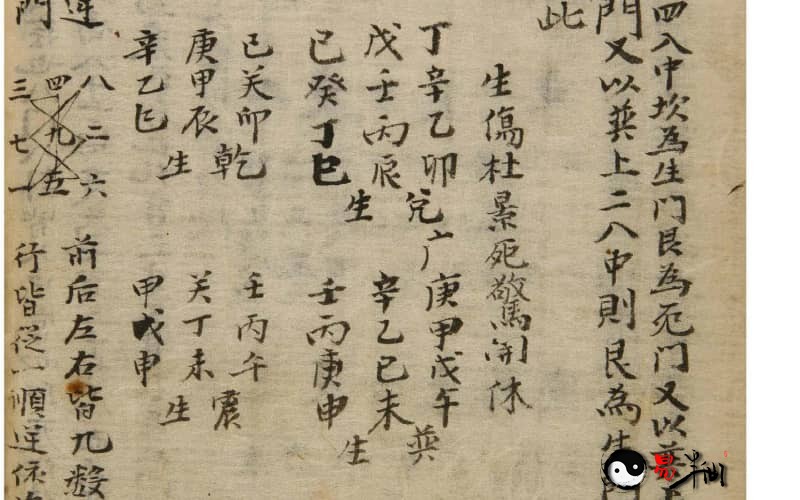 四八中坎為生門艮為死門又以
門又以巽上二八中則艮為生門
此
生傷杜景死驚開休
丁辛乙卯
戊壬丙辰
己癸丁巳
兌
生
庚甲戊午
辛乙己未
壬丙庚申
巽
生
己癸卯 乾
庚甲辰
辛乙巳
生
壬丙午 震
关丁未
甲戊申
生
八二六 前后左右皆九数
四九五
三七一 行皆從一順逆
門